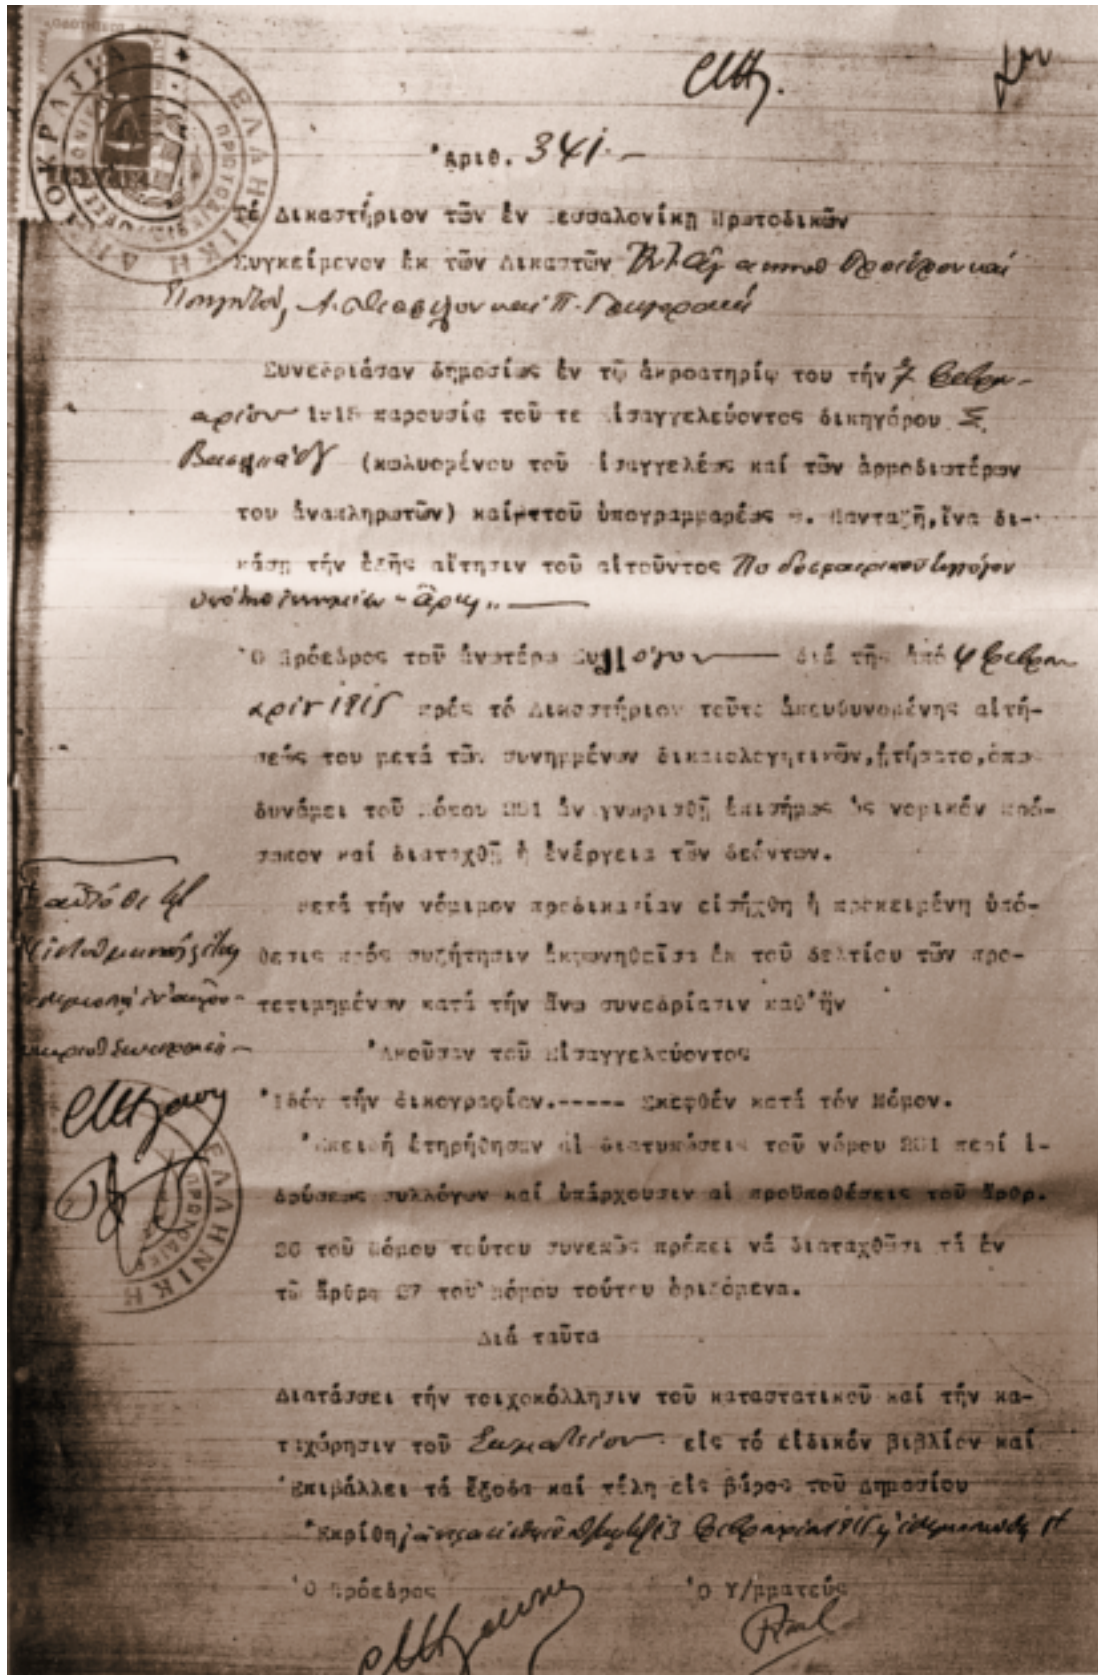 ΕΛΛΗΝΙΚΗ ΔΗΜΟΚΡΑΤΙΑ
Ἀριθ. 341.-
Τό Δικαστήριον τῶν ἐν Θεσσαλονίκῃ Πρωτοδικῶν
Συγκείμενον ἐκ τῶν Δικαστῶν Προέδρου καί
καί Π. Γρηγοράκη
Συνεδριάσαν δημοσίως ἐν τῷ ἀκροατηρίῳ του τήν 7 Φεβρου-
αρίου 1915 παρουσία τοῦ τε Εἰσαγγελεύοντος δικηγόρου Ξ
(κωλυομένου τοῦ Εἰσαγγελέως καί τῶν ἁρμοδιωτέρων
του ἀναπληρωτῶν) καί τοῦ ὑπογραμμαρέως Πανταζῆ, ἵνα δι-
κάσῃ τήν ἑξῆς αἴτησιν τοῦ αἰτοῦντος Ποδοσφαιρικοῦ Συλλόγου
ὑπό τήν ἐπωνυμίαν "Ἄρης"
Ὁ Πρόεδρος τοῦ ἀνωτέρω Συλλόγου διά τῆς ἀπό 4 Φεβρου
αρίου 1915 πρός τό Δικαστήριον τοῦτο ἀπευθυνομένης αἰτή-
σεώς του μετά τῶν συνημμένων δικαιολογητικῶν, ᾐτήσατο, ὅπως
δυνάμει τοῦ Νόμου 281 ἀναγνωρισθῇ ἐπισήμως ὡς νομικόν πρό-
σωπον καί διαταχθῇ ἡ ἐνέργεια τῶν δεόντων.
Μετά τήν νόμιμον προδικασίαν εἰσήχθη ἡ προκειμένη ὑπό-
θεσις πρός συζήτησιν ἐκφωνηθεῖσα ἐκ τοῦ δελτίου τῶν προ-
τετιμημένων κατά τήν ἄνω συνεδρίασιν καθ' ἥν
Ἀκοῦσαν τοῦ Εἰσαγγελεύοντος
Ἰδόν τήν δικογραφίαν.----- Σκεφθέν κατά τόν Νόμον.
Ἐπειδή ἐτηρήθησαν αἱ διατυπώσεις τοῦ νόμου 281 περί ἱ-
δρύσεως συλλόγων καί ὑπάρχουσιν αἱ προϋποθέσεις τοῦ ἄρθρ.
26 τοῦ Νόμου τούτου συνεπῶς πρέπει νά διαταχθῶσι τά ἐν
τῷ ἄρθρῳ 27 τοῦ νόμου τούτου ὁριζόμενα.
Διά ταῦτα
Διατάσσει τήν τοιχοκόλλησιν τοῦ καταστατικοῦ καί τήν κα-
ταχώρησιν τοῦ Σωματείου εἰς τό εἰδικόν βιβλίον καί
Ἐπιβάλλει τά ἔξοδα καί τέλη εἰς βάρος τοῦ Δημοσίου
Ἐκρίθη Φεβρουαρίου 1915
Ὁ Πρόεδρος Ὁ Υ/μματεύς
ΕΛΛΗΝΙΚΗ